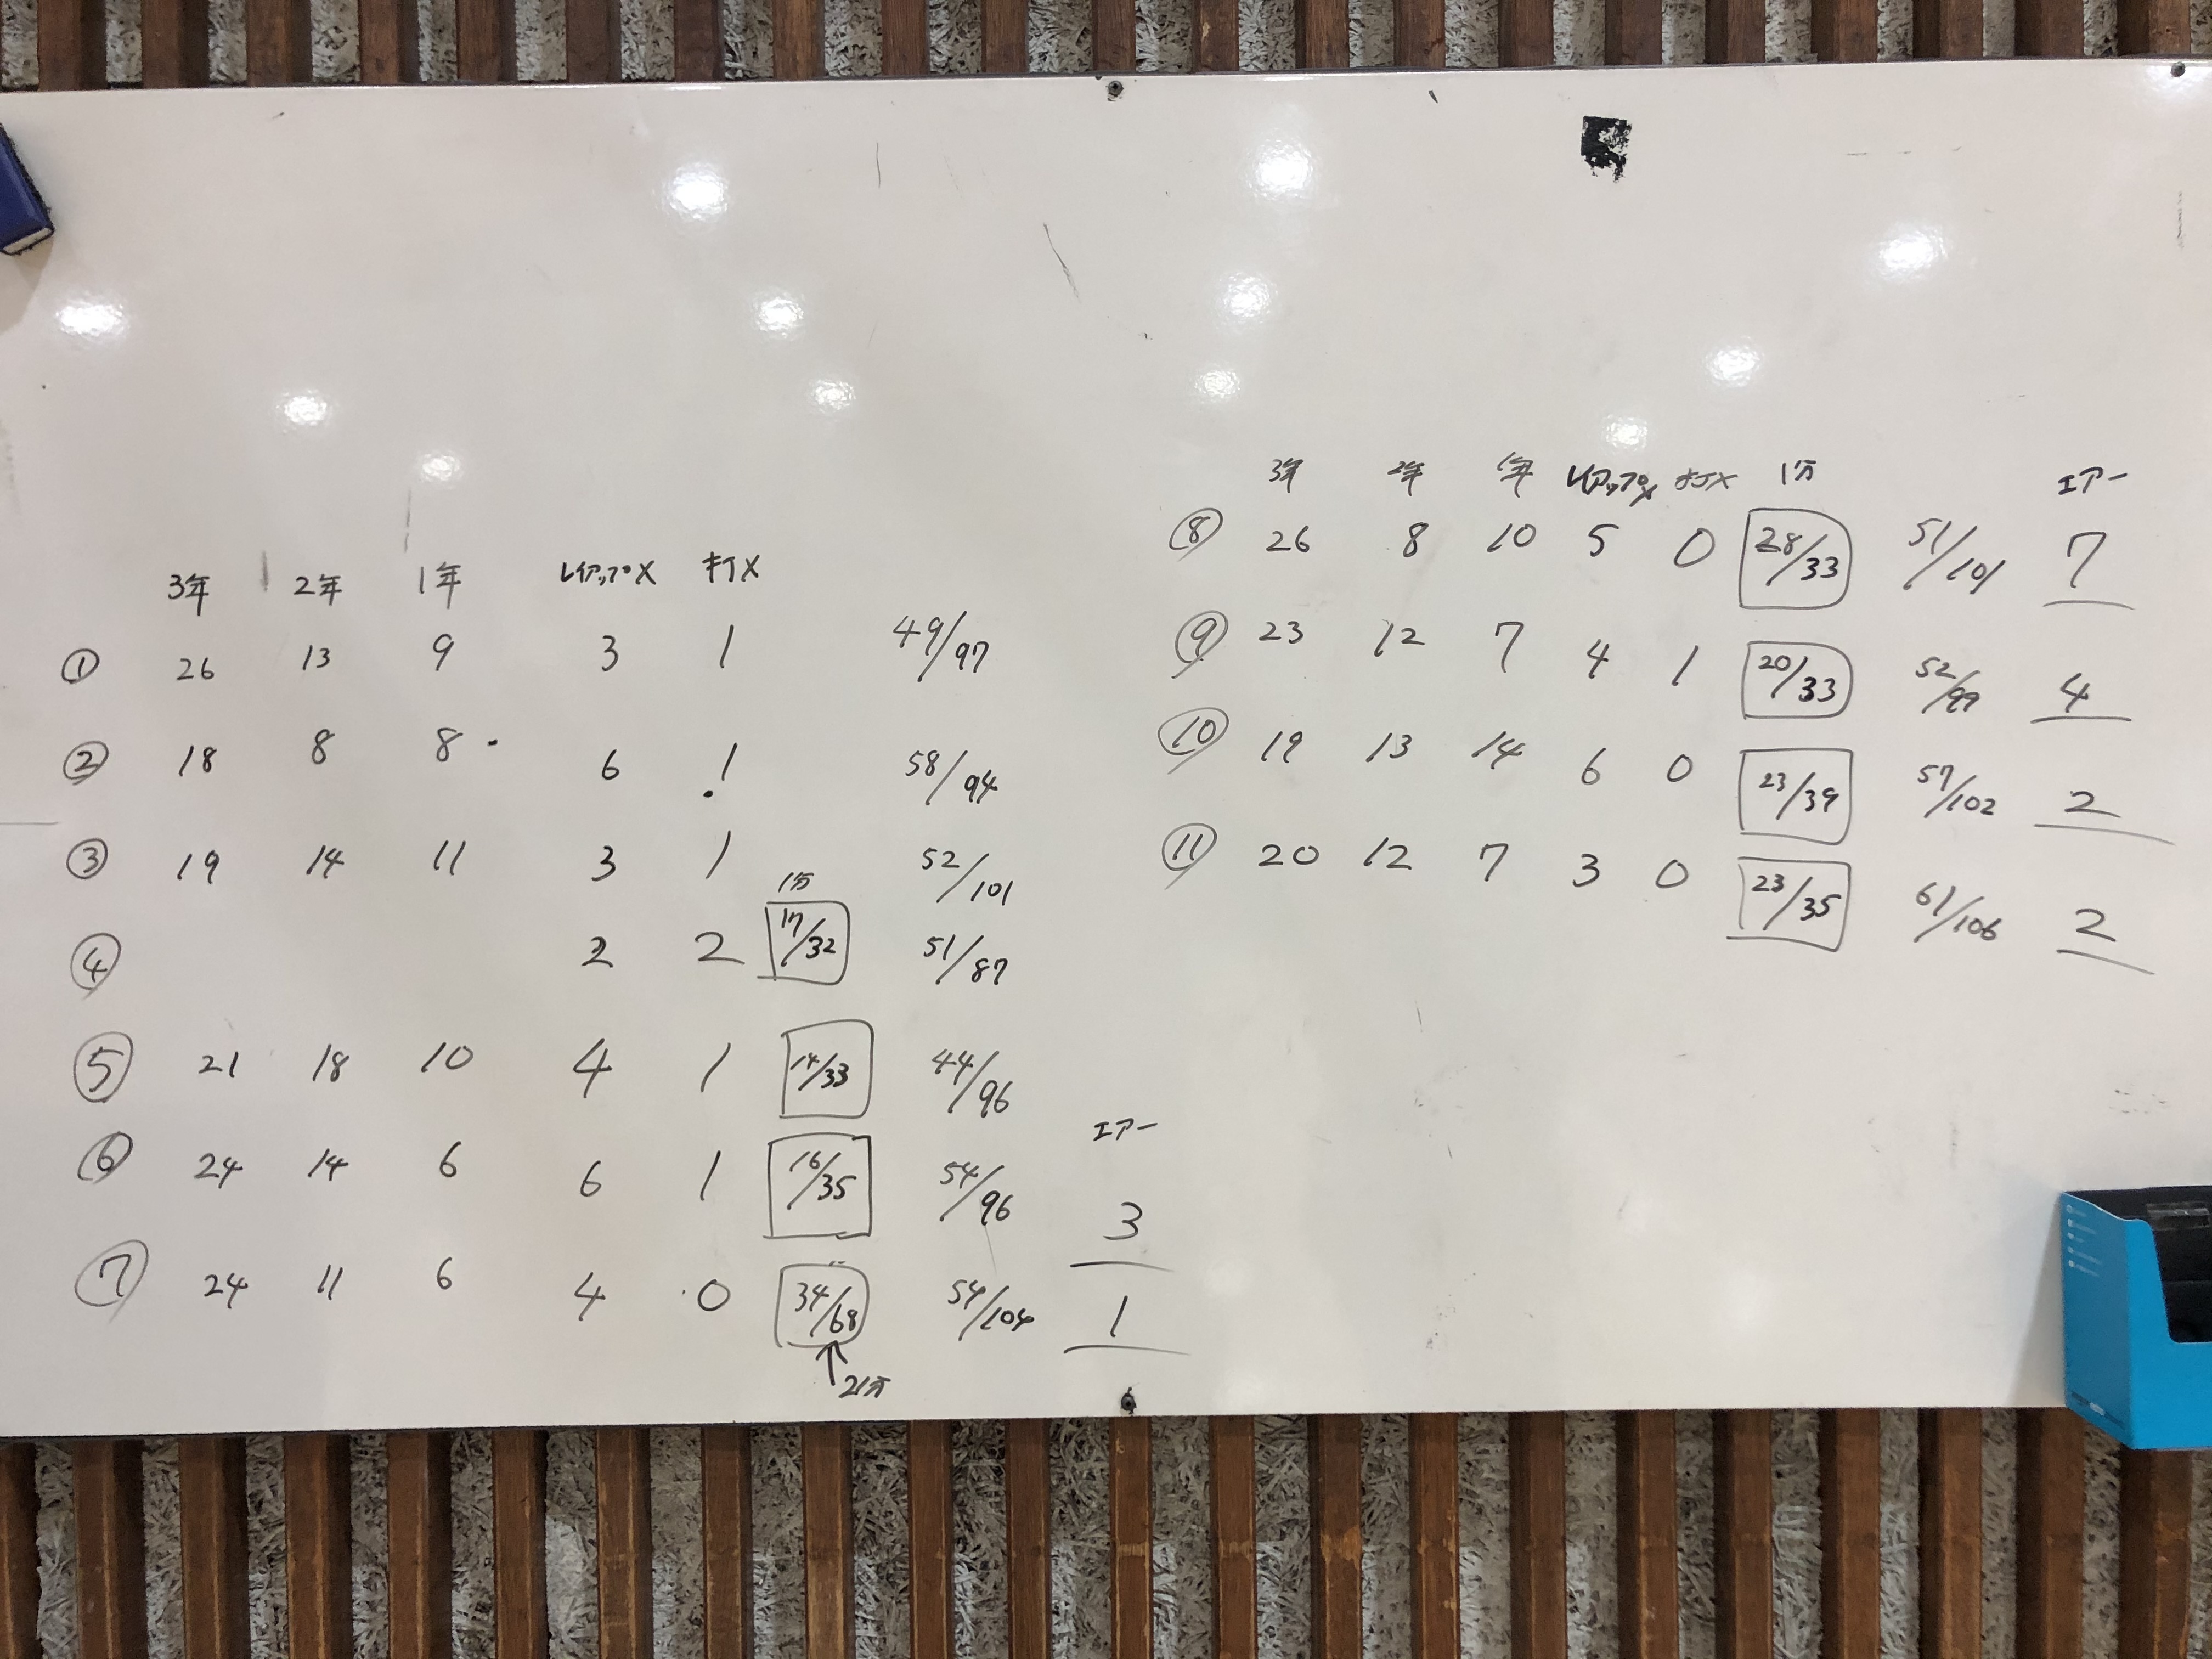 3年 2年 1年 レイアップ× キJ×
① 26 13 9 3 1 49/97
② 18 8 8 6 1 58/94
③ 19 14 11 3 1 52/101
1分
④ 2 2 17/32 51/87
⑤ 21 18 10 4 1 14/33 44/96
エアー
⑥ 24 14 6 6 1 16/35 54/96 3
⑦ 24 11 6 4 0 34/68 54/104 1
↑ 2分
3年 2年 1年 レイアップ× 1分 エアー
⑧ 26 8 10 5 0 28/33 51/101 7
⑨ 23 12 7 4 1 20/33 52/99 4
⑩ 19 13 14 6 0 23/39 57/102 2
⑪ 20 12 7 3 0 23/35 61/106 2